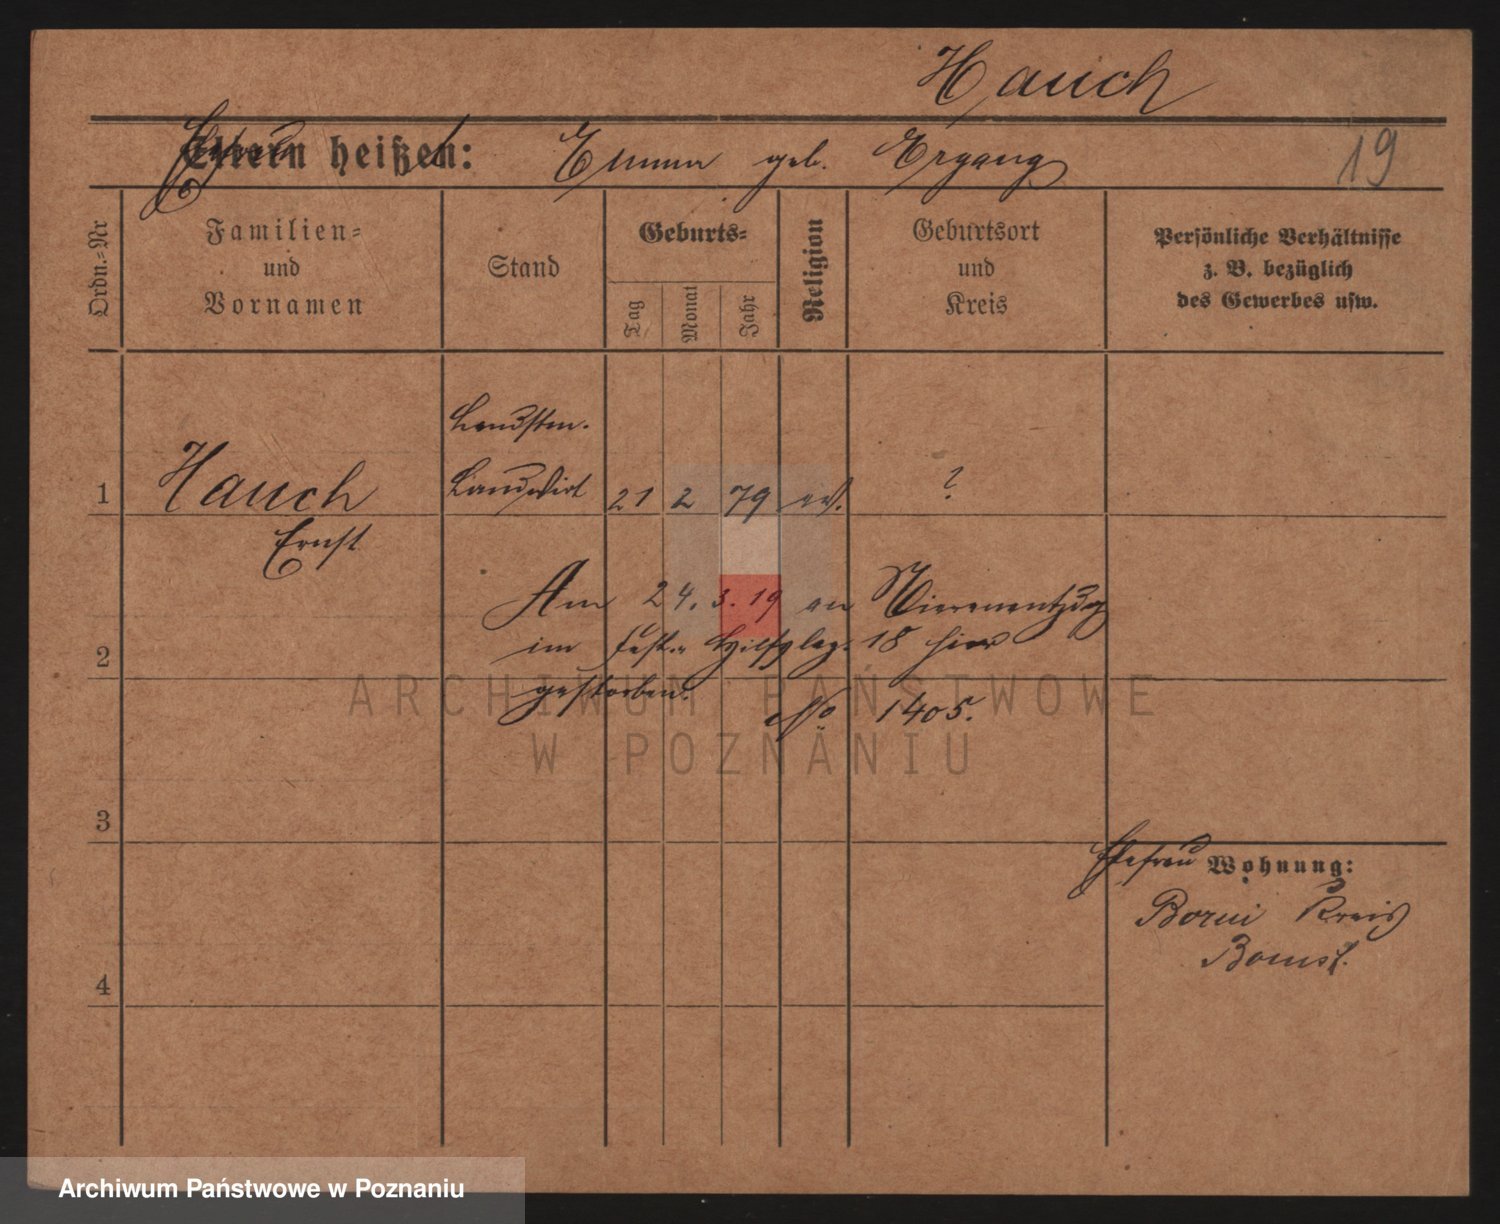 Hauch
Ehefrau
Eltern heißen: Emma geb. Ergang
19
Ordn.=Nr
Familien=
und
Vornamen
Stand
Geburts=
Tag
Monat
Jahr
Religion
Geburtsort
und
Kreis
Persönliche Verhältnisse
z. B. bezüglich
des Gewerbes usw.
Landstm.
1 Hauch Landwirt 21 2 79 ev. ?
Ernst
Am 24. 3. 19 an
im Fest. Hilfslaz. 18 hier
2
gestorben.
No 1405.
ARCHIWUM PAŃSTWOWE
W POZNANIU
3
Ehefrau Wohnung:
Borui Kreis
Bomst.
4
Archiwum Państwowe w Poznaniu